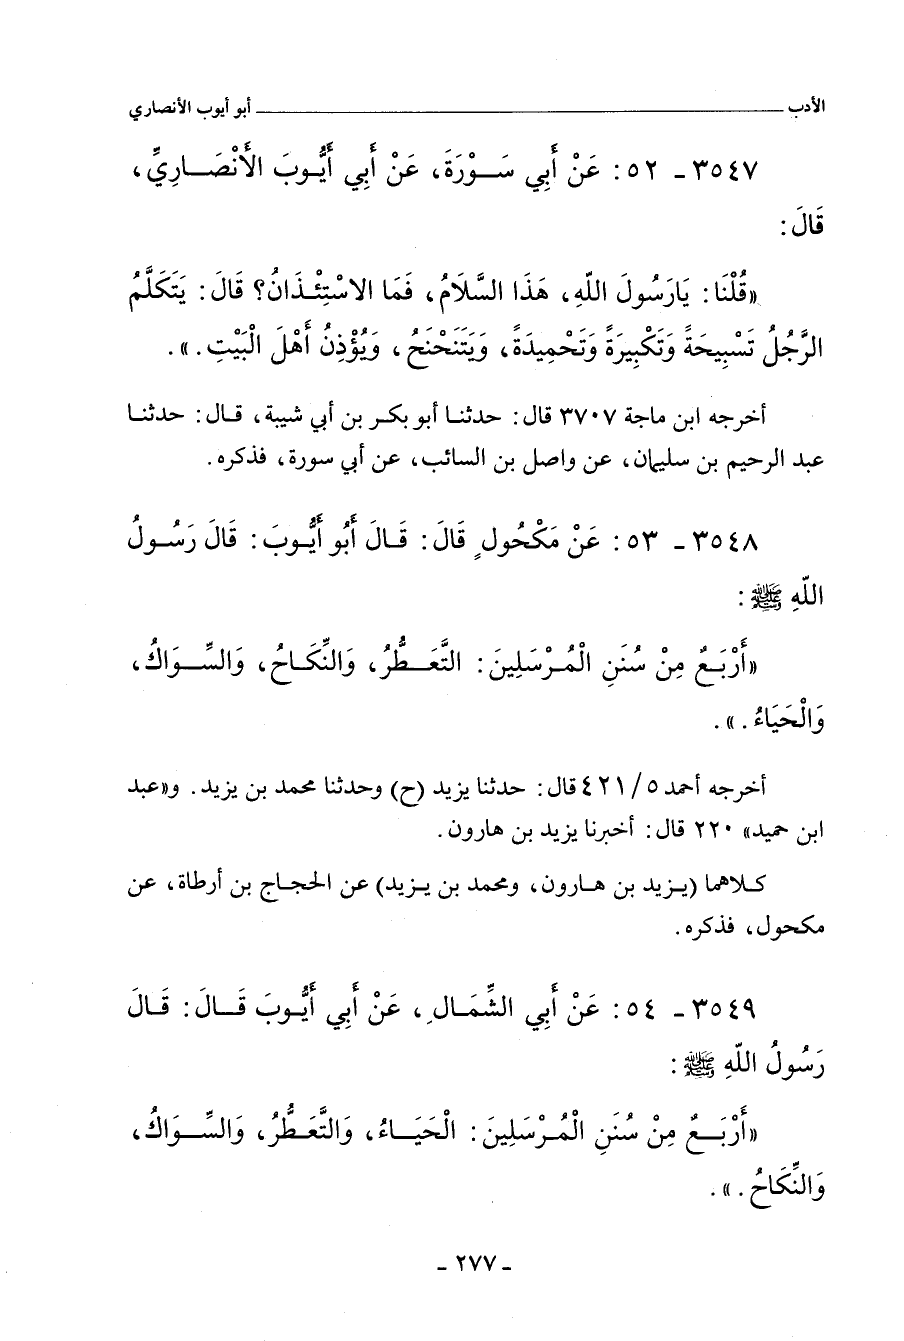 الأدب ــــــــــ أبو أيوب الأنصاري
٣٥٤٧ ـ ٥٢ : عَنْ أَبِي سَـوْرَةَ، عَنْ أَبِي أَيُّوبَ الأَنْصَـارِيِّ،
قَالَ :
«قُلْنَا : يَارَسُولَ اللّهِ، هَذَا السَّلَامُ، فَمَا الاسْتِئْذَانُ؟ قَالَ : يَتَكَلَّمُ
الرَّجُلُ تَسْبِيحَةً وَتَكْبِيرَةً وَتَحْمِيدَةً، وَيَتَنَحْنَحُ، وَيُؤْذِنُ أَهْلَ الْبَيْتِ .» .
أخرجه ابن ماجة ٣٧٠٧ قال : حدثنا أبو بكر بن أبي شيبة، قال : حدثنا
عبد الرحيم بن سليمان، عن واصل بن السائب، عن أبي سورة، فذكره .
٣٥٤٨ ـ ٥٣ : عَنْ مَكْحُولٍ قَالَ : قَالَ أَبُو أَيُّوبَ : قَالَ رَسُولُ
اللّهِ ﷺ :
«أَرْبَعٌ مِنْ سُنَنِ الْمُرْسَلِينَ : التَّعَطُّرُ، وَالنِّكَاحُ، وَالسِّوَاكُ،
وَالْحَيَاءُ .» .
أخرجه أحمد ٥/ ٤٢١ قال : حدثنا يزيد (ح) وحدثنا محمد بن يزيد . و«عبد
ابن حميد» ٢٢٠ قال : أخبرنا يزيد بن هارون .
كلاهما (يزيد بن هارون، ومحمد بن يزيد) عن الحجاج بن أرطاة، عن
مكحول، فذكره .
٣٥٤٩ ـ ٥٤ : عَنْ أَبِي الشِّمَالِ، عَنْ أَبِي أَيُّوبَ قَالَ : قَالَ
رَسُولُ اللّهِ ﷺ :
«أَرْبَعٌ مِنْ سُنَنِ الْمُرْسَلِينَ : الْحَيَاءُ، وَالتَّعَطُّرُ، وَالسِّوَاكُ،
وَالنِّكَاحُ .» .
ـ ٢٧٧ ـ